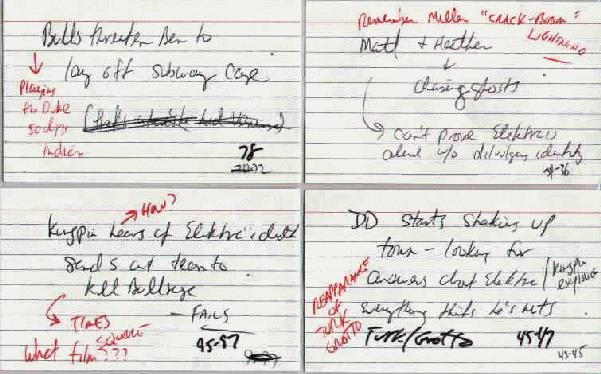 Bulls threaten Ben to
lay off subway case
Playing
the Duke
scalps
Indian
78
Remember Miller "CRACK-BOOM"
LIGHTNING
Matt & Heather
chasing ghosts
Can't prove Elektra is
alive w/o divulging identity
34-36
How?
Kingpin hears of Elektra
Sends out team to
kill Bullseye
- FAILS
TIMES
SQUARE
What film???
45-87
DD starts shaking up
town - looking for
answers about Elektra
Kingpin
everything thinks he's nuts
REAPPEARANCE
OF
TURK
GROTTO
Turk/Grotto
4547
43-45